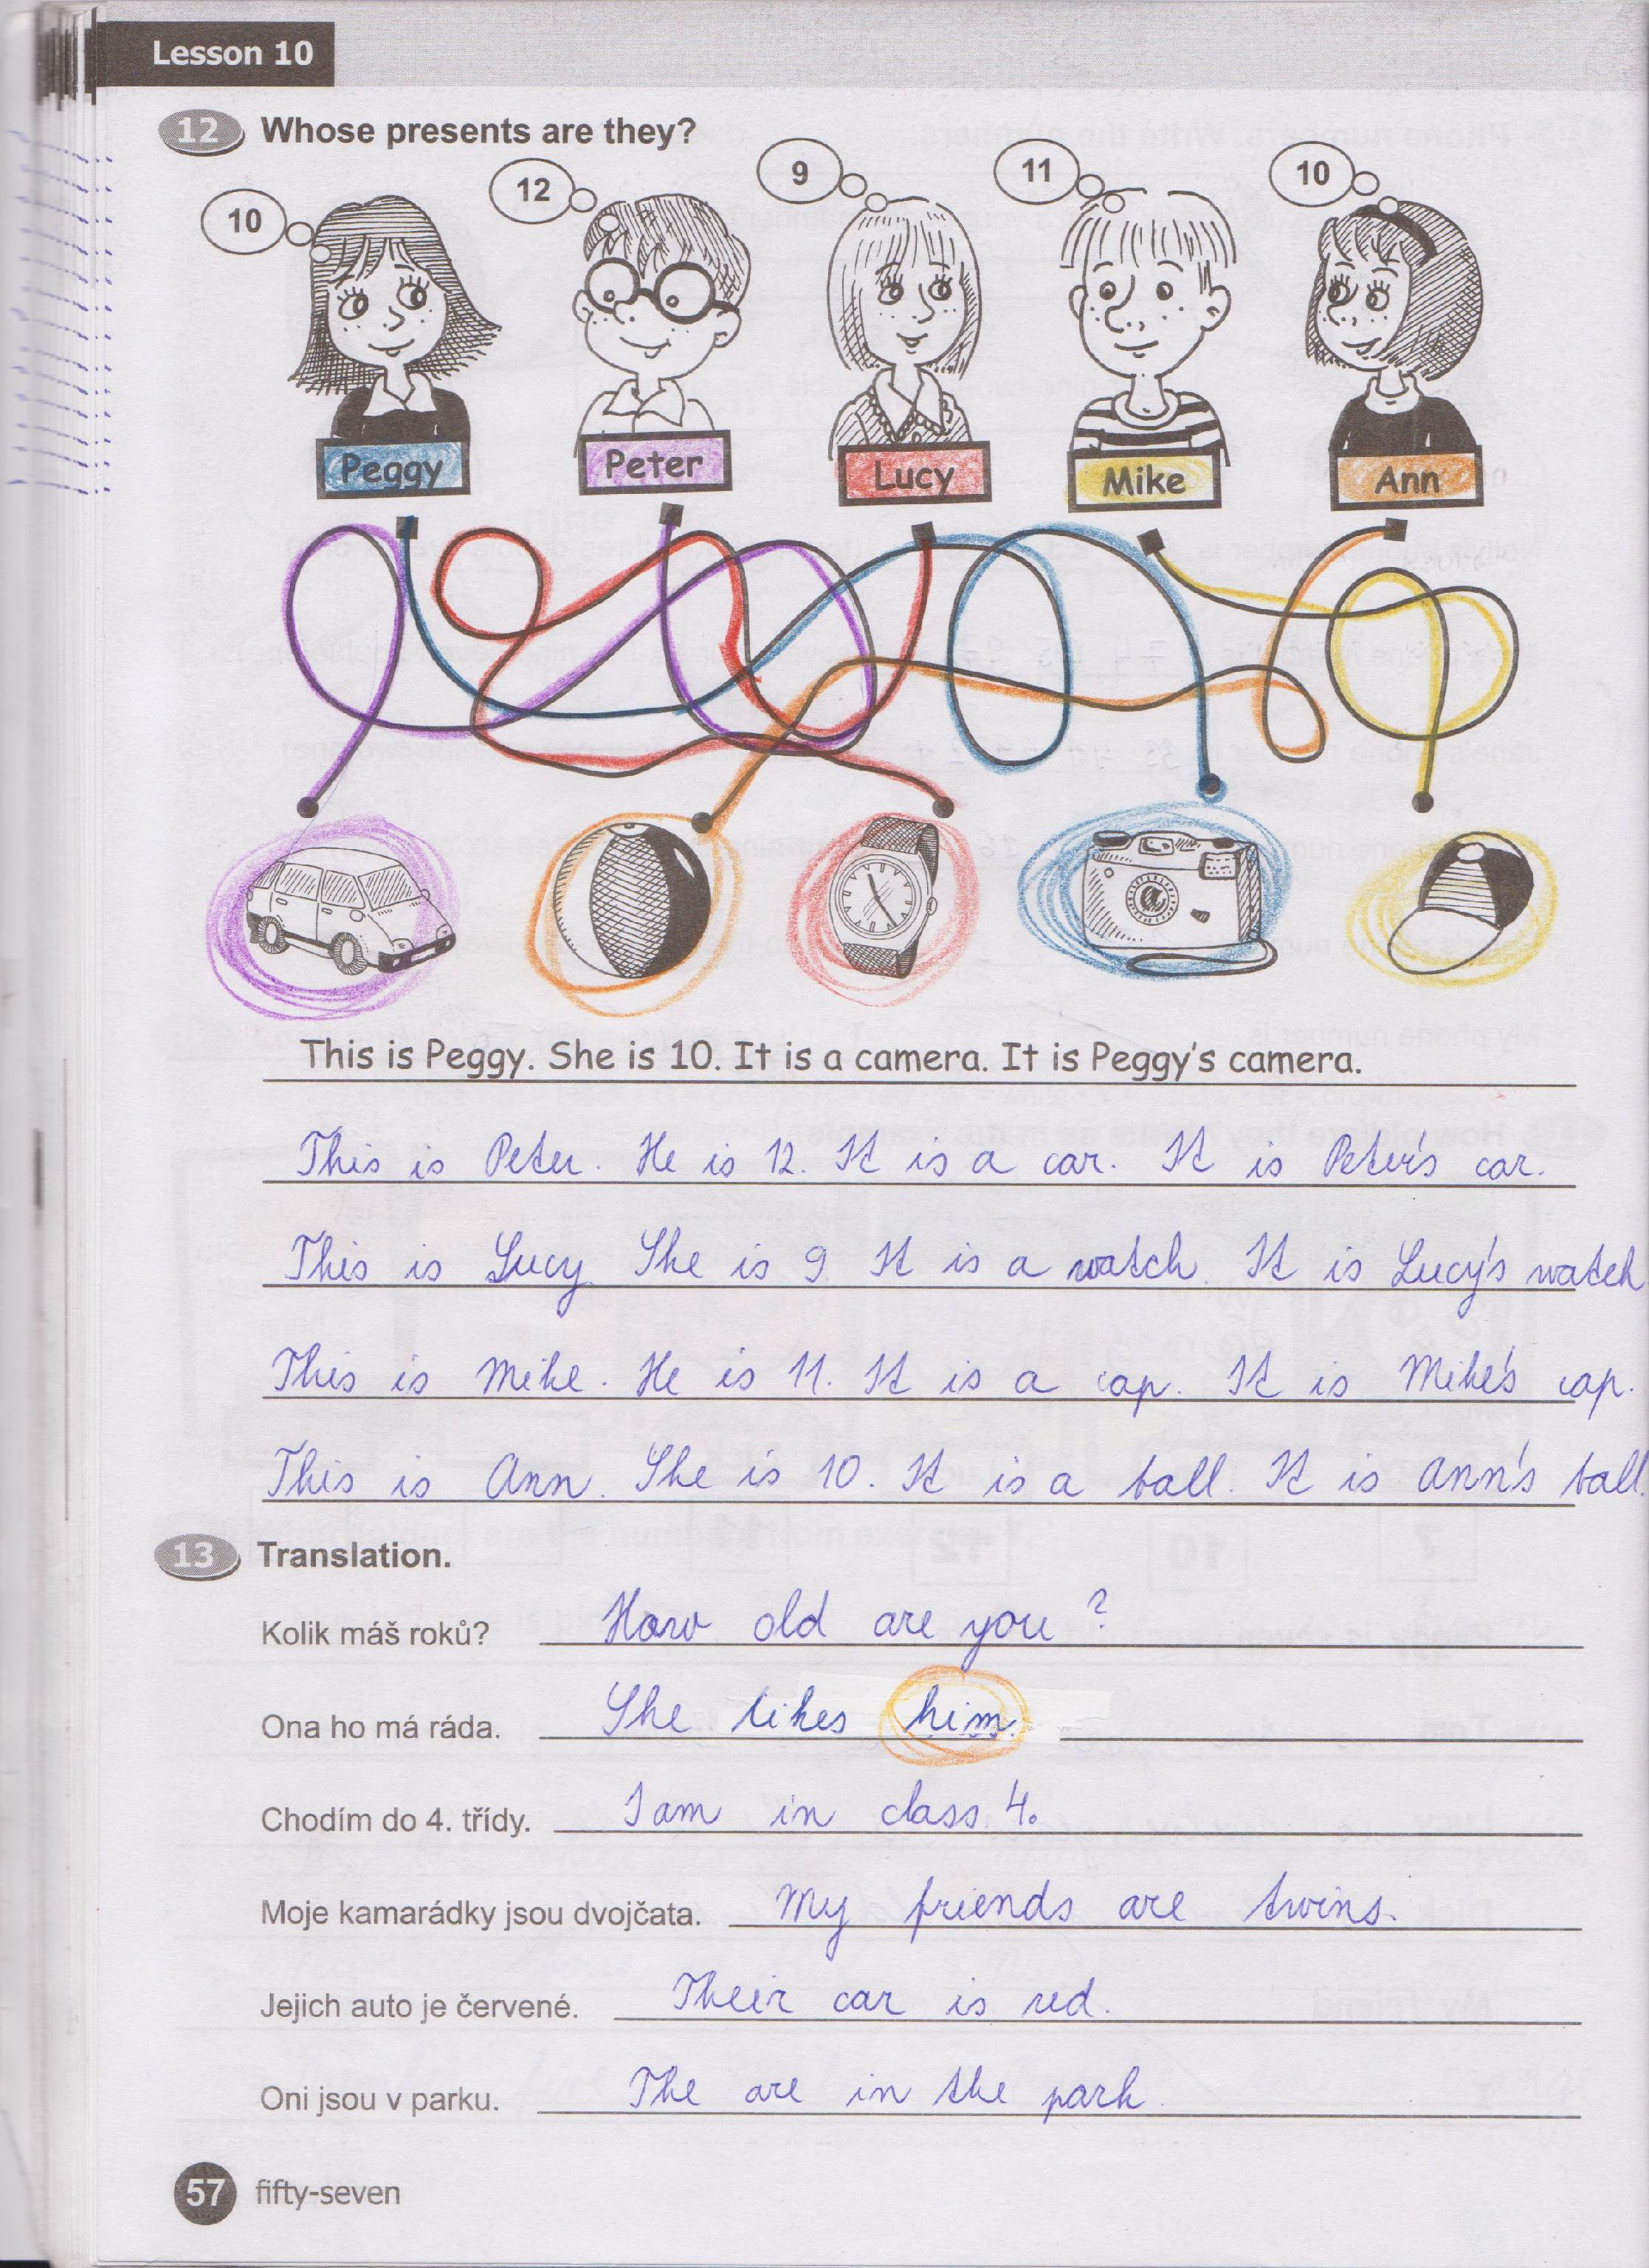 Lesson 10
12 Whose presents are they?
10 12 9 11 10
Peggy Peter Lucy Mike Ann
This is Peggy. She is 10. It is a camera. It is Peggy's camera.
This is Peter. He is 12. It is a car. It is Peter's car.
This is Lucy. She is 9. It is a watch. It is Lucy's watch
This is Mike. He is 11. It is a cap. It is Mike's cap.
This is Ann. She is 10. It is a ball. It is Ann's ball.
13 Translation.
Kolik máš roků? How old are you?
Ona ho má ráda. She likes him.
Chodím do 4. třídy. I am in class 4.
Moje kamarádky jsou dvojčata. My friends are twins.
Jejich auto je červené. Their car is red.
Oni jsou v parku. The are in the park.
57 fifty-seven